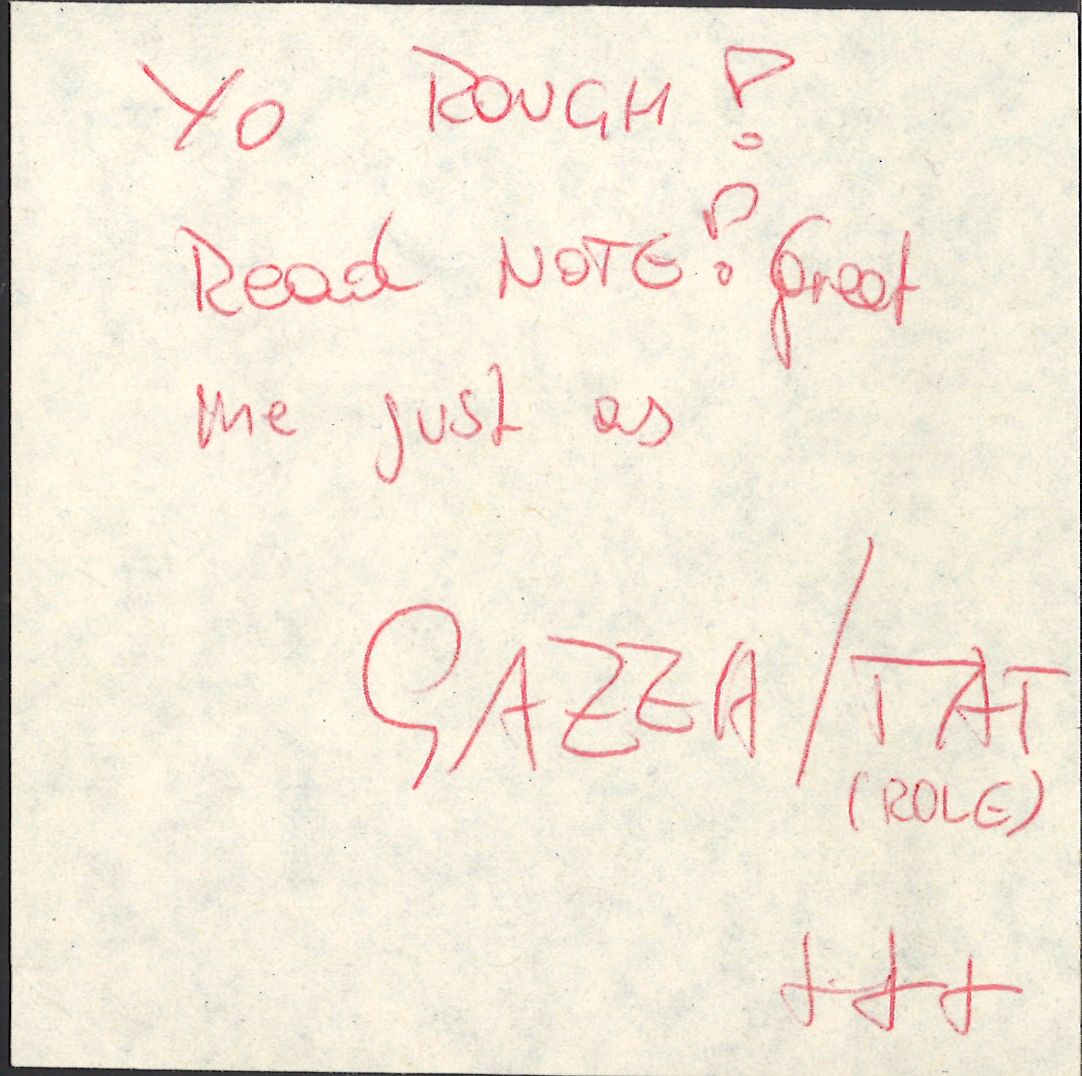 Yo ROUGH!
Read NOTE! Great
me just as
GAZZA/TAT
(ROLE)
+++